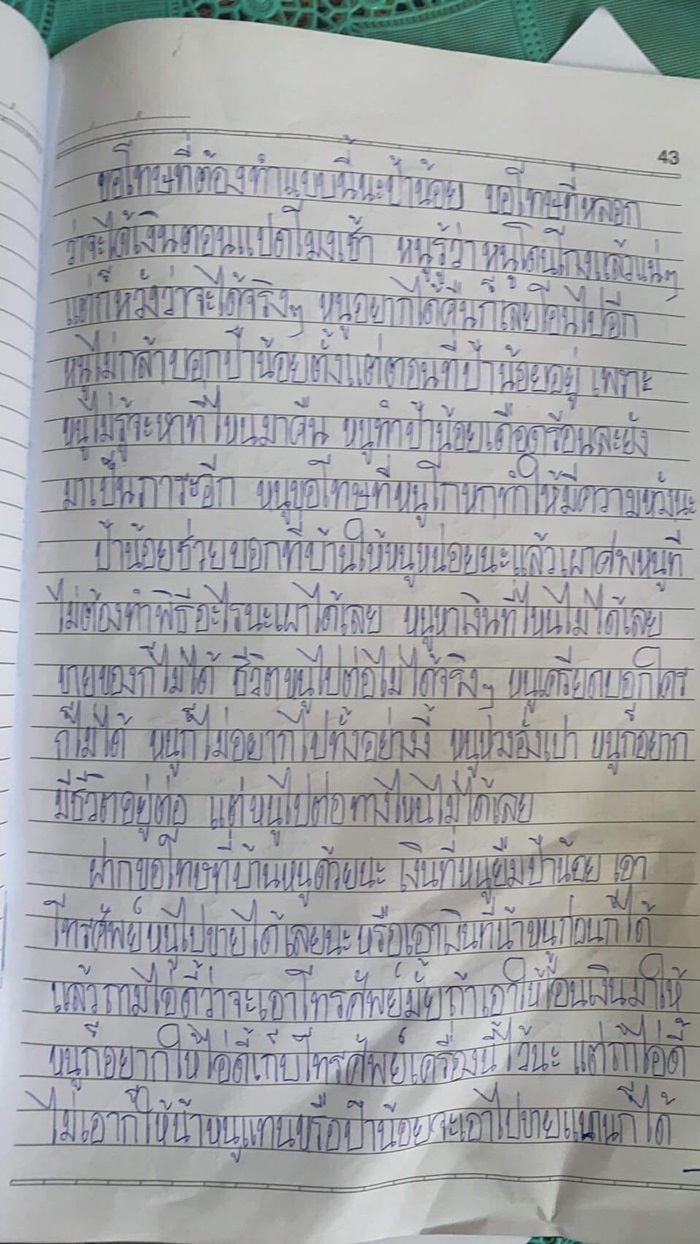 43
ขอโทษที่ต้องทำแบบนี้นะป้าน้อย ขอโทษที่หลอก
ว่าจะได้เงินตอนแปดโมงเช้า หนูรู้ว่าหนูโดนโกงแล้วแน่ๆ
แต่ก็หวังว่าจะได้จริงๆ หนูอยากได้คืนก็เลยโอนไปอีก
หนูไม่กล้าบอกป้าน้อยตั้งแต่ตอนที่ป้าน้อยอยู่ เพราะ
หนูไม่รู้จะหาที่ไหนมาคืน หนูทำป้าน้อยเดือดร้อนละยัง
มาเป็นภาระอีก หนูขอโทษที่หนูโกหกทำให้มีความหวังนะ
ป้าน้อยช่วยบอกที่บ้านให้หนูหน่อยนะแล้วเผาศพหนูที่
ไม่ต้องทำพิธีอะไรนะเผาได้เลย หนูหาเงินที่ไหนไม่ได้เลย
ขายของก็ไม่ได้ ชีวิตหนูไปต่อไม่ได้จริงๆ หนูเครียดบอกใคร
ก็ไม่ได้ หนูก็ไม่อยากไปทั้งอย่างงี้ หนูห่วงอั่งเปา หนูก็อยาก
มีชีวิตอยู่ต่อ แต่หนูไปต่อทางไหนไม่ได้เลย
ฝากขอโทษที่บ้านหนูด้วยนะ เงินที่หนูยืมป้าน้อย เอา
โทรศัพย์หนูไปขายได้เลยนะหรือเอาเงินที่น้าหนูก่อนก็ได้
แล้วถามไอ่ดี้ว่าจะเอาโทรศัพย์มั้ยถ้าเอาให้โอนเงินมาให้
หนูก็อยากให้ไอ่ดี้เก็บโทรศัพย์เครื่องนี้ไว้นะ แต่ถ้าไอ่ดี้
ไม่เอาก็ให้น้าหนูแทนหรือป้าน้อยจะเอาไปขายแทนก็ได้